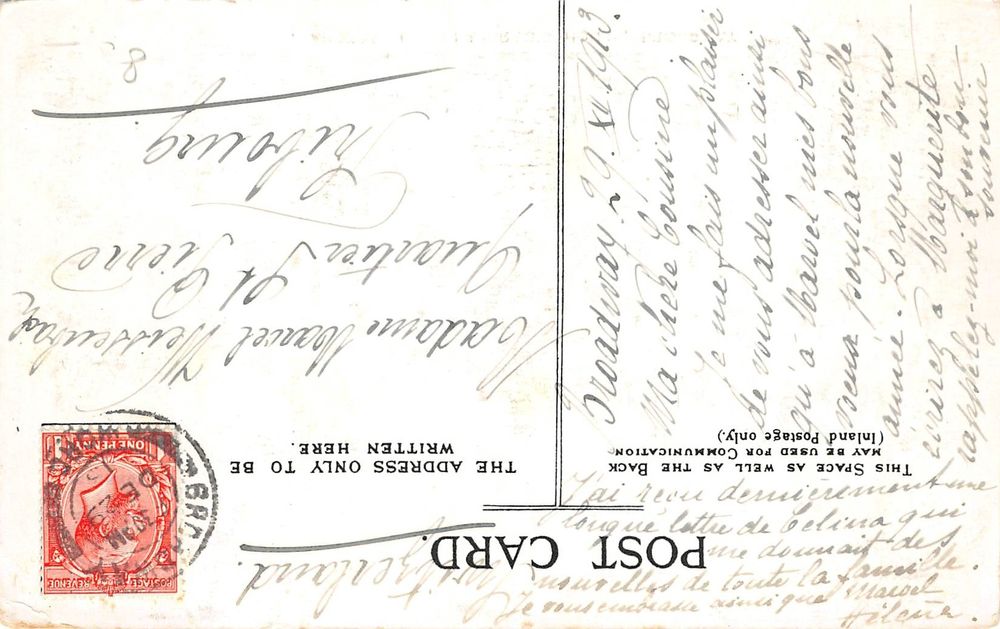 POST CARD.
THIS SPACE AS WELL AS THE BACK
MAY BE USED FOR COMMUNICATION
(Inland Postage only.)
THE ADDRESS ONLY TO BE
WRITTEN HERE.
Broadway 29. XII 1913.
Ma chère Cousine
Je me fais un plaisir
de vous adresser ainsi
qu'à Marcel mes bons
vœux pour la nouvelle
année. Lorsque vous
écrirez à Marguerite
rappelez-moi à son bon
J'ai reçu dernièrement une
longue lettre de Celina qui
me donnait des
nouvelles de toute la famille.
Je vous embrasse ainsi que Marcel
Hélène.
Madame Marcel
Quartier St Pierre
Fribourg
Switzerland.
8
POSTAGE REVENUE
ONE PENNY
BROADWAY
DE 29
13